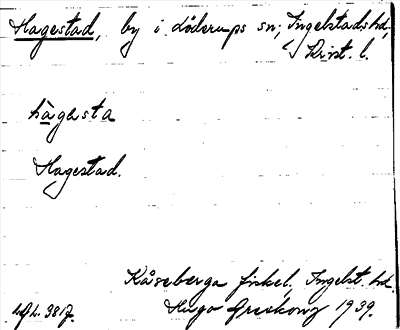 Hagestad, by i Löderups sn, Ingelstads hd,
Krist. l.
hàgesta
Hagestad.
Kåseberga fiskel. Ingelst. hd.
Hugo Areskoug 1939.